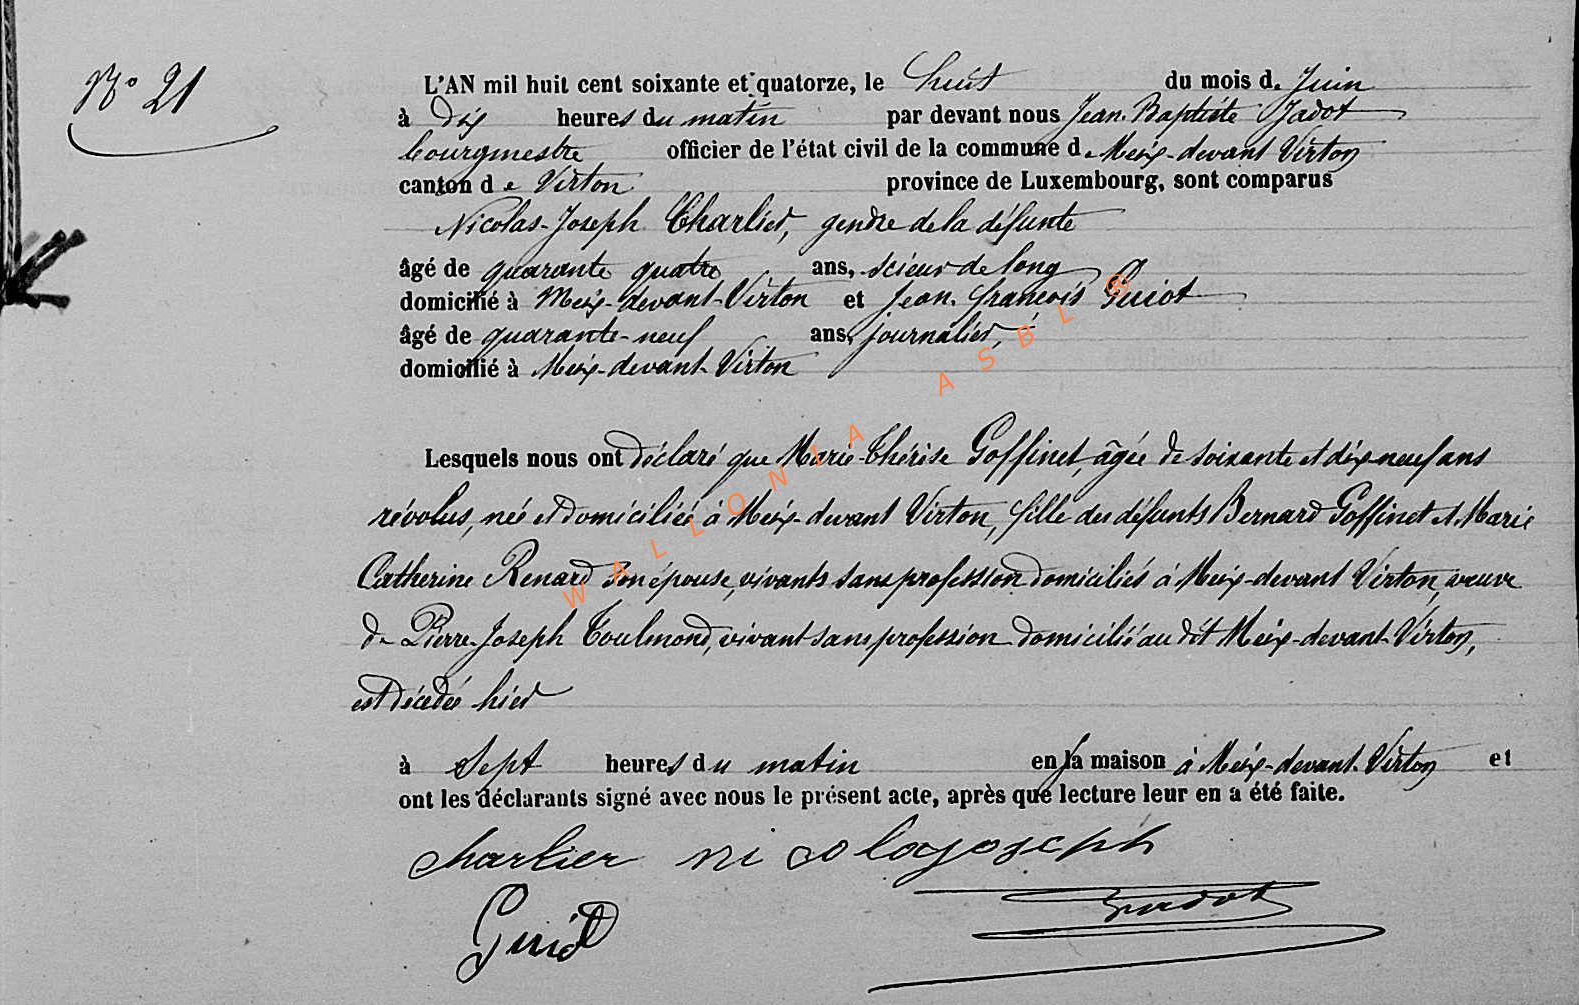 N° 21
L'AN mil huit cent soixante et quatorze, le huit du mois de Juin
à dix heures du matin par devant nous Jean-Baptiste Jadot
bourgmestre officier de l'état civil de la commune de Meix-devant Virton
canton de Virton province de Luxembourg, sont comparus
Nicolas-Joseph Charlier, gendre de la défunte
âgé de quarante quatre ans, scieur de long
domicilié à Meix-devant-Virton et Jean-François Guiot
âgé de quarante-neuf ans, journalier,
domicilié à Meix-devant-Virton
Lesquels nous ont déclaré que Marie-Thérèse Goffinet, âgée de soixante et dix neuf ans
révolus, née et domiciliée à Meix-devant Virton, fille des défunts Bernard Goffinet et Marie
Catherine Renard son épouse, vivants sans profession domiciliés à Meix-devant Virton, veuve
de Pierre-Joseph Toulmond, vivant sans profession domicilié au dit Meix-devant-Virton,
est décédée hier
à sept heures du matin en sa maison à Meix-devant-Virton et
ont les déclarants signé avec nous le présent acte, après que lecture leur en a été faite.
charlier nicolas joseph
Guiot Jadot
WALLONIA ASBL ®